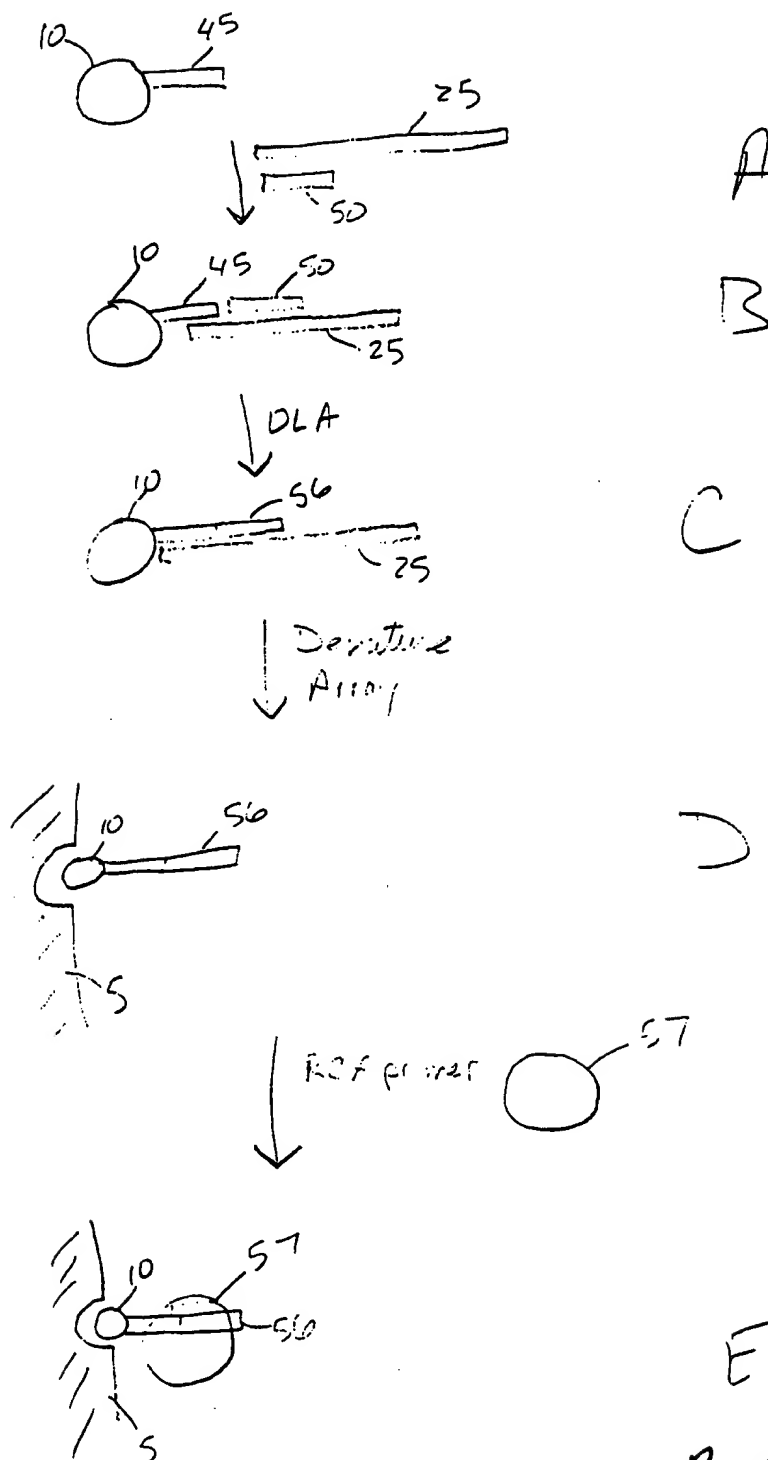 10 45
25
A
50
10 45 50
B
25
OLA
10 56
C
25
Denature
Array
10 56
D
5
57
primer
57
10
56
E
5